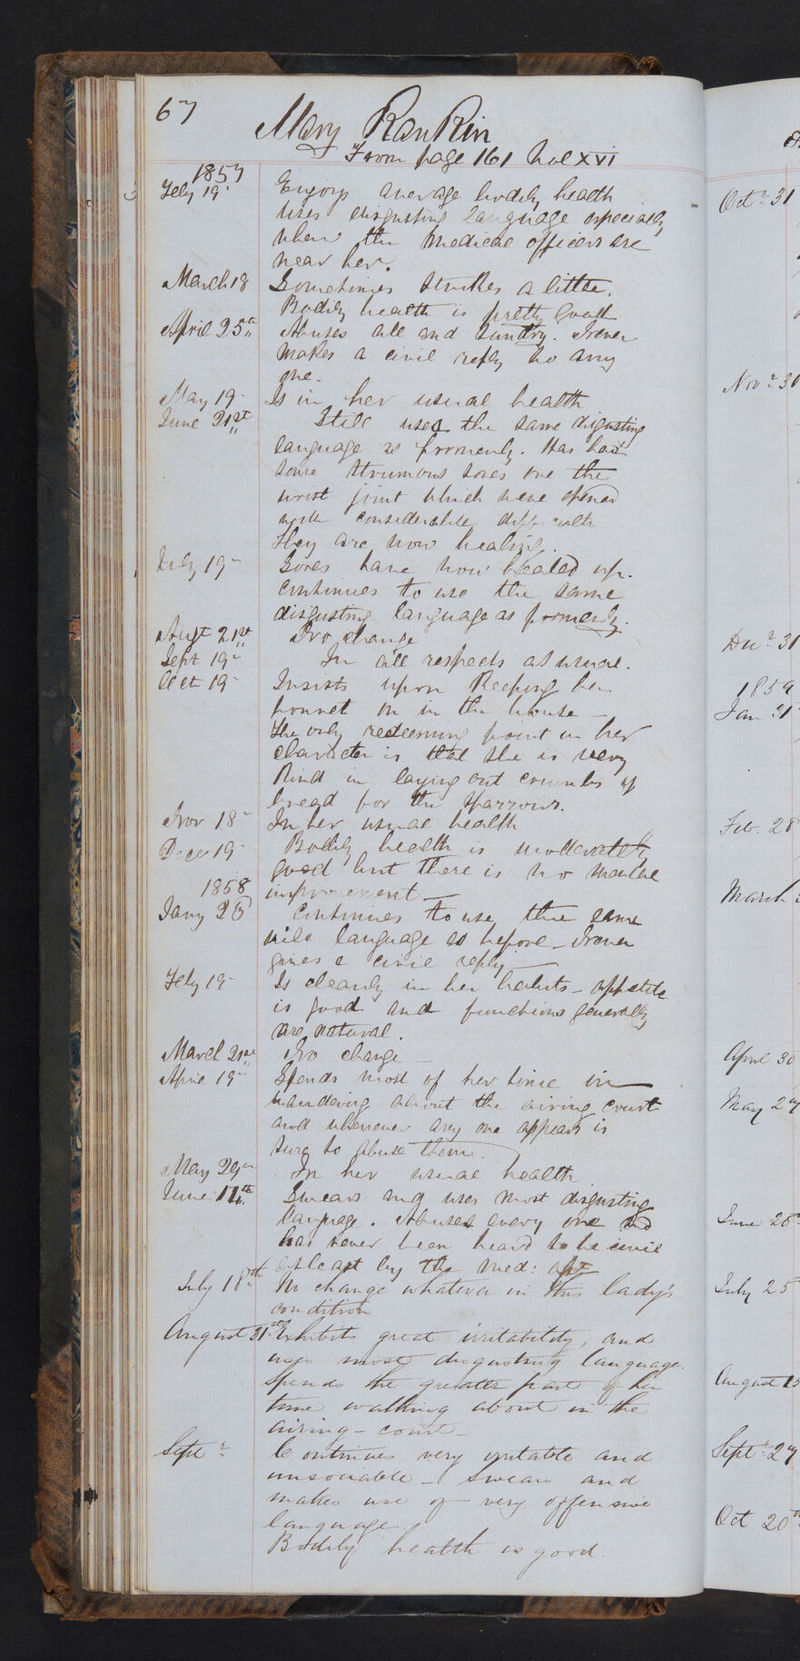 67
Mary Rankin
From page 161 Vol XVI
1857
Feby 19- Enjoys average bodily health
uses disgusting language especially
when the medical officers are
near her.
March 18 Sometimes strikes a little.
Bodily health is pretty good
April 25th Abuses all and sundry. Never
makes a civil reply to any
one.
May 19- Is in her usual health
June 21st Still uses the same disgusting
language as formerly. Has had
some strumous sores on the
wrist joint which were opened
with considerable difficulty
they are now healing.
July 19- Sores have now healed up.
Continues to use the same
disgusting language as formerly.
Augt 21st No change
Sept 19- In all respects as usual.
Oct 19- Insists upon keeping her
bonnet on in the house -
the only redeeming point in her
character is that she is very
kind in laying out crumbs of
bread for the sparrows.
Nov 18- In her usual health
Decr 19- Bodily health is moderately
good but there is no mental
1858 improvement -
Jany 23 Continues to use the same
vile language as before - Never
gives a civil reply -
Feby 19- Is cleanly in her habits - appetite
is good and functions generally
are natural.
March 21st No change -
April 19- Spends most of her time in
wandering about the airing court
and whenever any one appears is
sure to abuse them.
May 29th In her usual health
June 17th Swears and uses most disgusting
language. Abuses every one and
has never been heard to be civil
at least by the med:
July 18th No change whatever in this lady's
condition
August 31st Exhibits great irritability, and
uses most disgusting language.
Spends the greater part of her
time walking about in the
airing-court -
Sept r Continues very irritable and
unsociable - Swears and
makes use of very offensive
language.
Bodily health is good.
Oct r 31
Nov r 30
Decr 31
1859
Jan 31
Feb. 28
March
April 30
May 27
June 28
July 25
August 15
Septr 27
Oct 20th